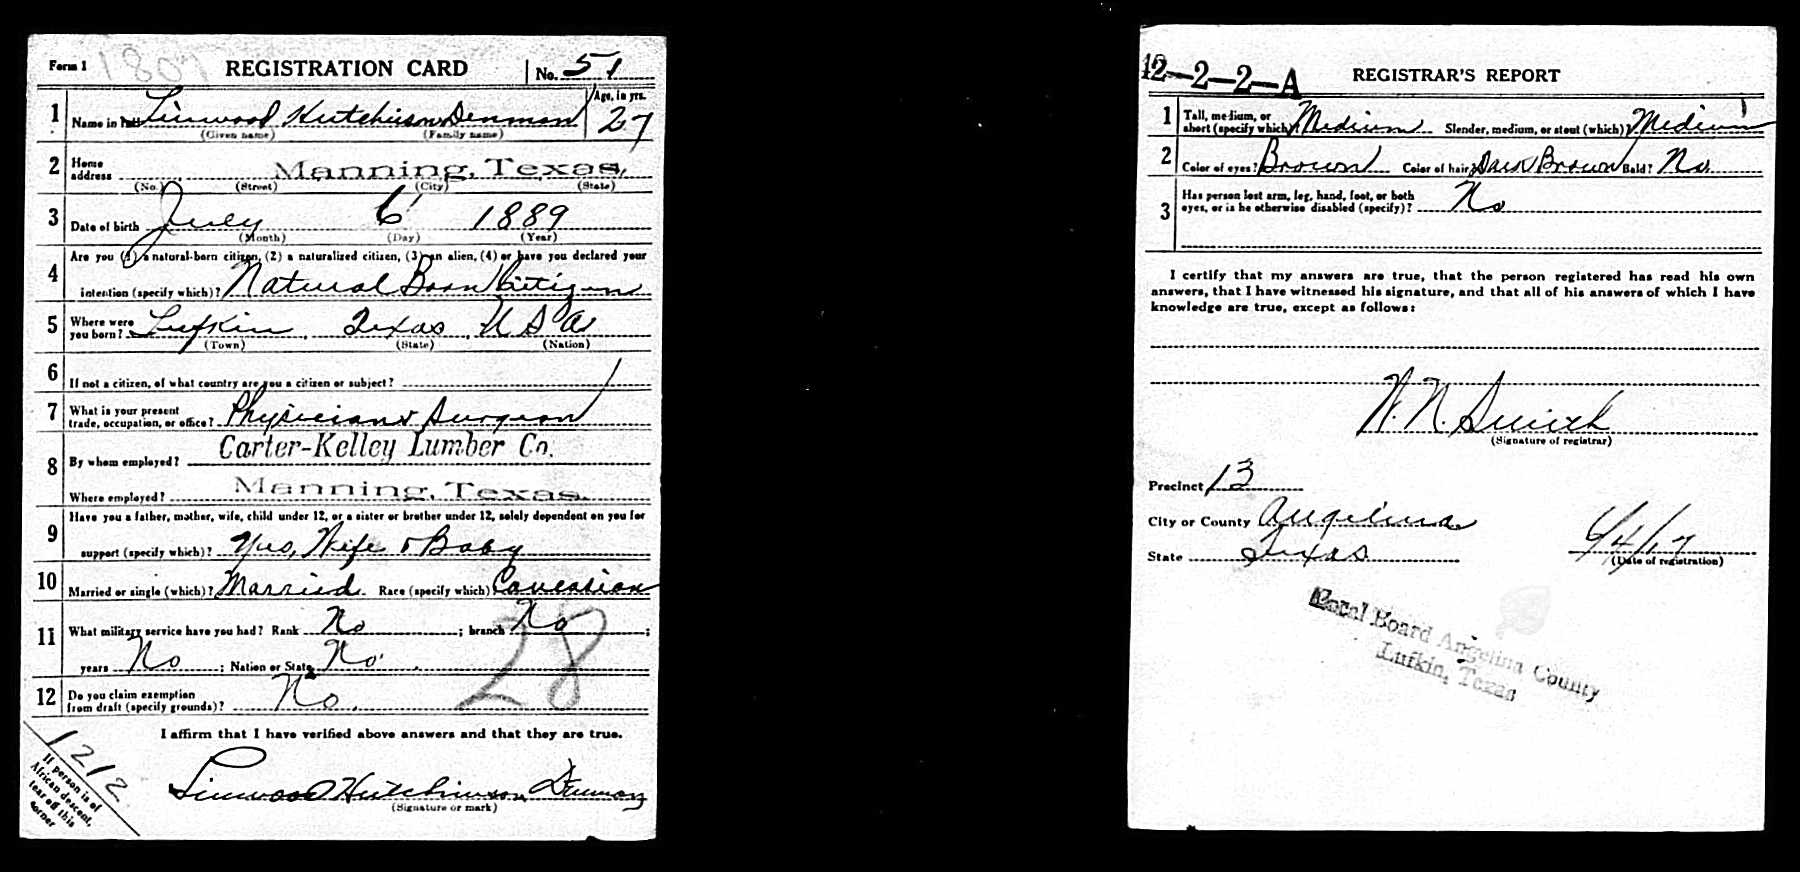 Form 1 1807 REGISTRATION CARD No. 51
1 Name in full Linwood Hutchinson Denman Age, in yrs. 27
(Given name) (Family name)
2 Home address Manning, Texas.
(No.) (Street) (City) (State)
3 Date of birth July 6 1889
(Month) (Day) (Year)
4 Are you (1) a natural-born citizen, (2) a naturalized citizen, (3) an alien, (4) or have you declared your
intention (specify which)? Natural Born Citizen
5 Where were you born? Lufkin, Texas, U S A
(Town) (State) (Nation)
6 If not a citizen, of what country are you a citizen or subject?
7 What is your present trade, occupation, or office? Physician & Surgeon
8 By whom employed? Carter-Kelley Lumber Co.
Where employed? Manning, Texas.
9 Have you a father, mother, wife, child under 12, or a sister or brother under 12, solely dependent on you for
support (specify which)? Yes, Wife & Baby
10 Married or single (which)? Married Race (specify which)? Caucasian
11 What military service have you had? Rank No ; branch No ;
years No ; Nation or State No .
28
12 Do you claim exemption from draft (specify grounds)? No.
I affirm that I have verified above answers and that they are true.
Linwood Hutchinson Denman
(Signature or mark)
1212
If person is of
African descent,
tear off this
corner
42-2-2-A REGISTRAR'S REPORT
1 Tall, medium, or short (specify which)? Medium Slender, medium, or stout (which)? Medium
2 Color of eyes? Brown Color of hair? Dark Brown Bald? No
3 Has person lost arm, leg, hand, foot, or both eyes, or is he otherwise disabled (specify)? No
I certify that my answers are true, that the person registered has read his own
answers, that I have witnessed his signature, and that all of his answers of which I have
knowledge are true, except as follows:
W. N. Smith
(Signature of registrar)
Precinct 13
City or County Angelina
State Texas
6/4/17
(Date of registration)
Local Board Angelina County
Lufkin, Texas